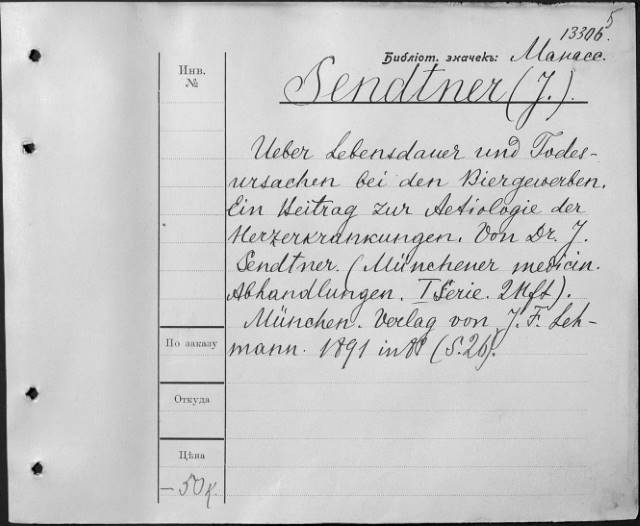 13306.5
Библіот. значекъ: Манасс.
Инв.
№
Sendtner (J.).
Ueber Lebensdauer und Todes-
ursachen bei den Biergewerben.
Ein Beitrag zur Aetiologie der
Herzerkrankungen. Von Dr. J.
Sendtner. (Münchener medicin.
Abhandlungen. I Serie. 2 Hft).
München. Verlag von J. F. Leh-
mann. 1891 in 8º (S. 26).
По заказу
Откуда
Цѣна
— 50 к.